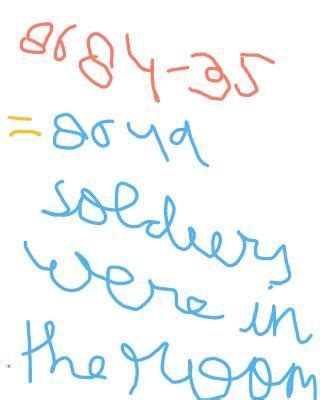 8684-35
= 8649
soldiers
were in
the room